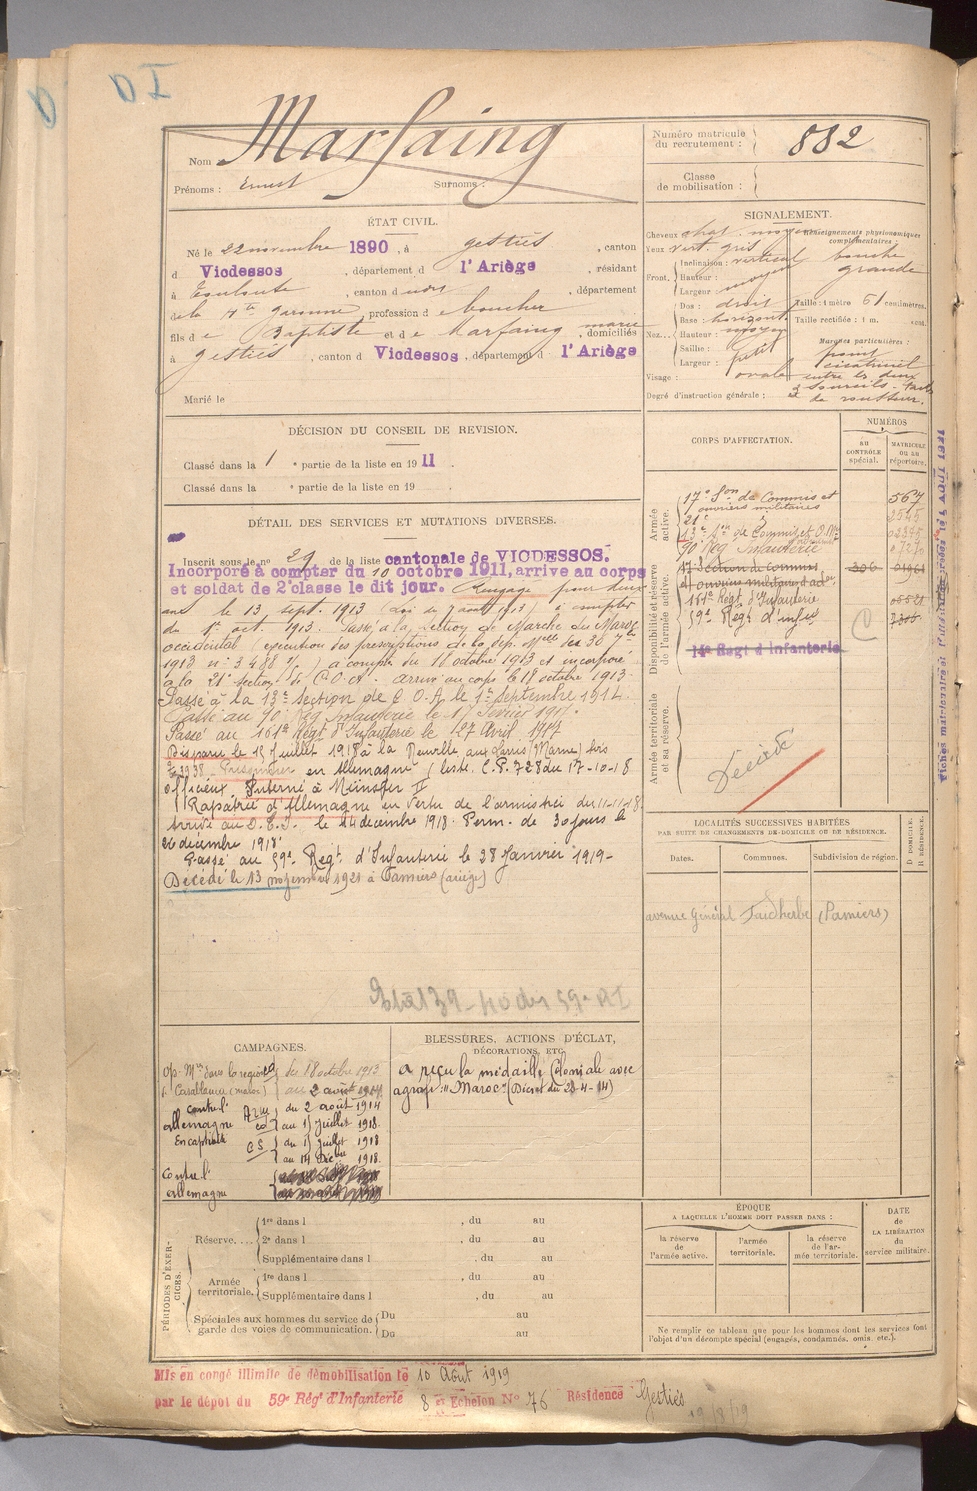 Marfaing
Nom
Prénoms : Ernest Surnoms :
Numéro matricule du recrutement : 882
Classe de mobilisation :
ÉTAT CIVIL.
Né le 22 novembre 1890, à Gestiès, canton
d Vicdessos, département d l'Ariège, résidant
à Toulouse, canton d dudit, département
de la Hte Garonne, profession d boucher
fils de Baptiste et de Marfaing Marie, domiciliés
à Gestiès, canton d Vicdessos, département d l'Ariège
Marié le
SIGNALEMENT.
Cheveux chat. moyen
Yeux vert. gris
Front, Inclinaison : vertical
Hauteur :
Largeur : moyen
Nez... Dos : droit
Base : horizont.
Hauteur : moyen
Saillie :
Largeur : petit
Visage : ovale
Renseignements physionomiques complémentaires :
bouche
grande
Taille : 1 mètre 61 centimètres.
Taille rectifiée : 1 m. cent.
Marques particulières :
point
cicatriciel
entre les deux
sourcils - taches
de rousseur.
Degré d'instruction générale : 3
DÉCISION DU CONSEIL DE REVISION.
Classé dans la 1e partie de la liste en 1911.
Classé dans la e partie de la liste en 19 .
DÉTAIL DES SERVICES ET MUTATIONS DIVERSES.
Inscrit sous le no 29 de la liste cantonale de VICDESSOS.
Incorporé à compter du 10 octobre 1911, arrive au corps
et soldat de 2e classe le dit jour. Rengagé pour deux
ans le 13 sept. 1913 (Loi du 7 août 1913) à compter
du 1er oct. 1913. Passé à la section de Marche du Maroc
occidental (exécution des prescriptions de la dép. Mlle du 30 7bre
1913 no 3488 ) à compter du 18 octobre 1913 et incorporé
à la 21e section de C.O.A. arrivé au corps le 18 octobre 1913.
Passé à la 13e section de C.O.A. le 1er septembre 1914.
Passé au 90e Rég Infanterie le 17 février 1917.
Passé au 161e Régt d'Infanterie le 27 Avril 1917
Disparu le 15 Juillet 1918 à la Neuville aux Larris (Marne)
Prisonnier en Allemagne (liste C.P. 728 du 17-10-18
officieux, Interné à Münster II
Rapatrié d'Allemagne en vertu de l'armistice du 11-11-18
Arrivé au D.C.I. le 14 décembre 1918. Perm. de 30 jours le
26 décembre 1918
Passé au 59e Regt d'Infanterie le 28 Janvier 1919-
Décédé le 13 novembre 1921 à Pamiers (ariège)
CORPS D'AFFECTATION.
NUMÉROS
AU CONTRÔLE spécial.
MATRICULE OU AU répertoire.
Armée active.
17e Son de Commis et ouvriers militaires 567
21e 2545
13e Son de Commis et O. Mres 02345
90 Rég Infanterie 07270
Disponibilité et réserve de l'armée active.
17 Section de Commis 206 01961
et ouvriers militaires d'ad
161e Régt d'Infanterie
59e Regt d'infie
14e Regt d'Infanterie
Armée territoriale et sa réserve.
Décédé
LOCALITÉS SUCCESSIVES HABITÉES
PAR SUITE DE CHANGEMENTS DE DOMICILE OU DE RÉSIDENCE.
Dates. Communes. Subdivision de région. D DOMICILE. R RÉSIDENCE.
avenue Général Faidherbe (Pamiers)
CAMPAGNES.
Casablanca (maroc) du 18 octobre 1913
au 2 août 1914
contre l'allemagne du 2 août 1914
au 15 juillet 1918.
En captivité CS du 15 juillet 1918
au 14 Décbre 1918.
Contre l'
allemagne
BLESSURES, ACTIONS D'ÉCLAT,
DÉCORATIONS, ETC.
a reçu la médaille Coloniale avec
agrafe : "Maroc" (Décret du 28-4-14)
PÉRIODES D'EXERCICES.
Réserve.... 1re dans l , du au
2e dans l , du au
Supplémentaire dans l , du au
Armée territoriale. 1re dans l , du au
Supplémentaire dans l , du au
Spéciales aux hommes du service de garde des voies de communication. Du au
Du au
ÉPOQUE
A LAQUELLE L'HOMME DOIT PASSER DANS :
la réserve de l'armée active.
l'armée territoriale.
la réserve de l'armée territoriale.
DATE de LA LIBÉRATION du service militaire.
Ne remplir ce tableau que pour les hommes dont les services font
l'objet d'un décompte spécial (engagés, condamnés, omis, etc.).
Mis en congé illimité de démobilisation le 10 Août 1919
par le dépôt du 59e Rég d'Infanterie 8e Echelon No 76 Résidence Gestiès
19/8/19